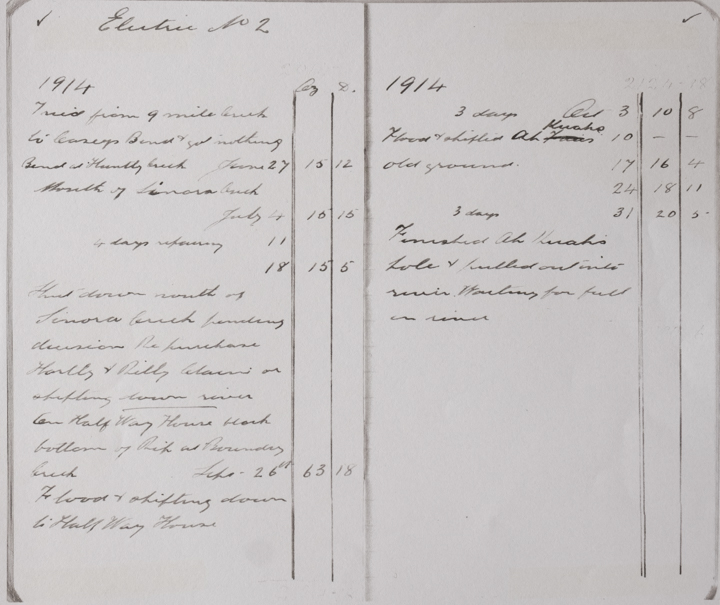 ✓ Electric No 2
1914 Oz D.
Tried from 9 mile Creek
to Caseys Bend & got nothing
Bend at Huntly Creek June 27 15 12
Mouth of Sinora Creek
July 4 15 15
4 days repairing 11
18 15 5
Shut down mouth of
Sinora Creek pending
decision Re purchase
Hartly & Rilly Claim or
shifting down river
On Half Way House block
bottom of Rip at Boundry
Creek Sept. 26th 63 18
Flood & shifting down
to Half Way House
✓
1914
3 days Oct 3 10 8
Kuahs
Flood & shifted Ah 10 – –
old ground. 17 16 4
24 18 11
3 days 31 20 5
Finished Ah Kuahs
hole & pulled out into
river Waiting for fall
in river